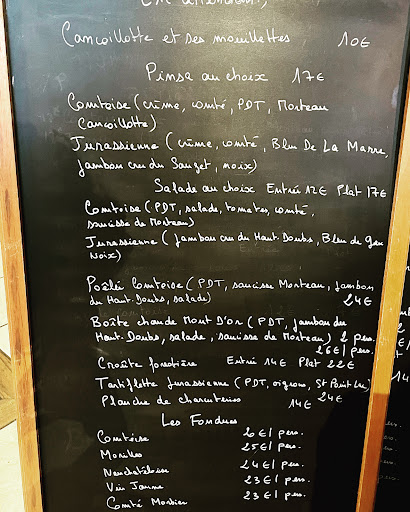 En attendant,
Cancoillotte et ses mouillettes 10€
Pinsa au choix 17€
Comtoise (crème, comté, PDT, Morteau
Cancoillotte)
Jurassienne (crème, comté, Bleu De La Marre,
jambon cru du Sauget, noix)
Salade au choix Entrée 12€ Plat 17€
Comtoise (PDT, salade, tomates, comté,
saucisse de Morteau)
Jurassienne (jambon cru du Haut-Doubs, Bleu de Gex
Noix)
Poêlée Comtoise (PDT, saucisse Morteau, jambon
du Haut-Doubs, salade) 24€
Boîte chaude Mont D'or (PDT, jambon du
Haut-Doubs, salade, saucisse de Morteau) 2 pers.
26€/pers.
Croûte forestière Entrée 14€ Plat 22€
Tartiflette Jurassienne (PDT, oignons, St Point
24€
Planche de charcuteries 14€
Les Fondues
Comtoise 20€/pers.
Morilles 25€/pers.
Neuchateloise 24€/pers.
Vin Jaune 23€/pers.
Comté Morbier 23€/pers.